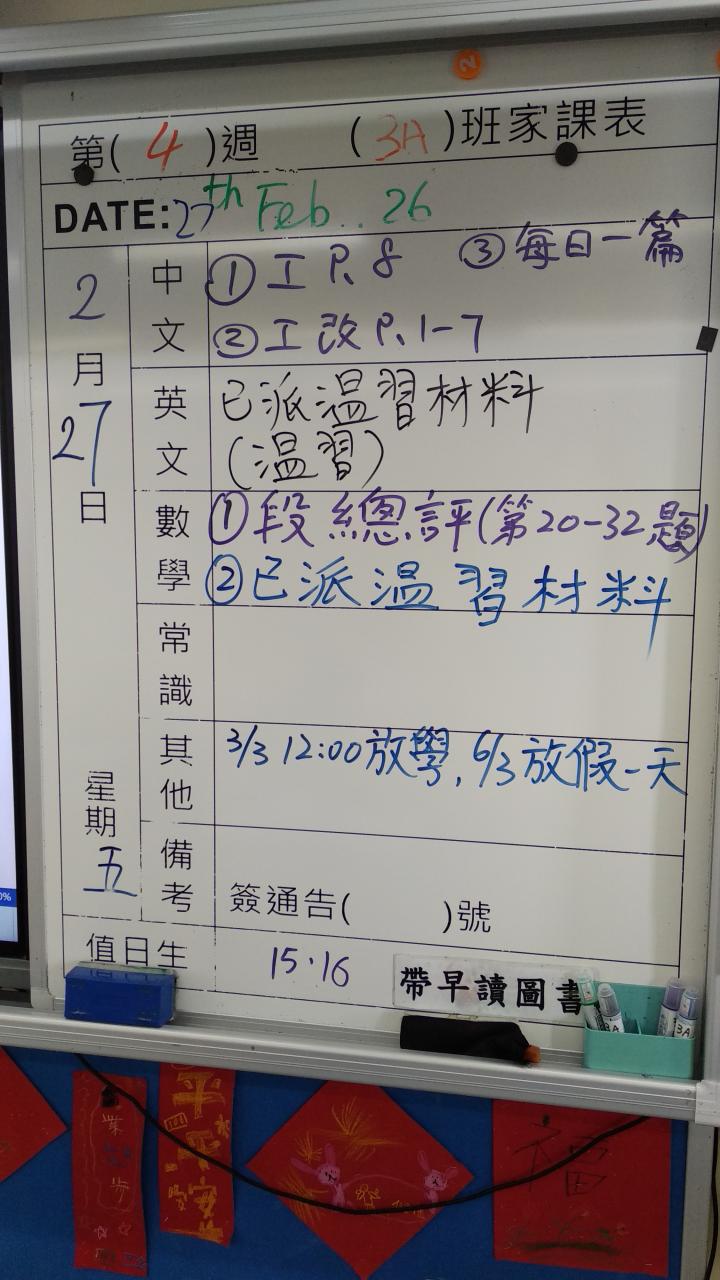 第( 4 )週 ( 3A )班家課表
DATE: 27th Feb.. 26
2月27日
星期五
中文
① 工 P. 8 ③ 每日一篇
② 工改 P. 1-7
英文
已派温習材料
(温習)
數學
① 段總評(第20-32題)
② 已派温習材料
常識
其他
3/3 12:00放學, 6/3放假一天
備考
簽通告( )號
值日生
15.16
帶早讀圖書
3A
3A
2
0%
福